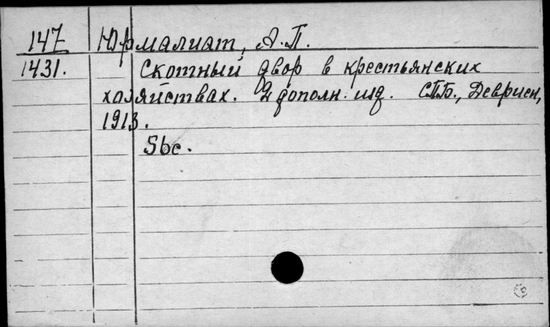 147 Юрмалиат, А.П.
1431. Скотный двор в крестьянских
хозяйствах. 2 дополн. изд. СПБ., Девриен,
1913.
56с.